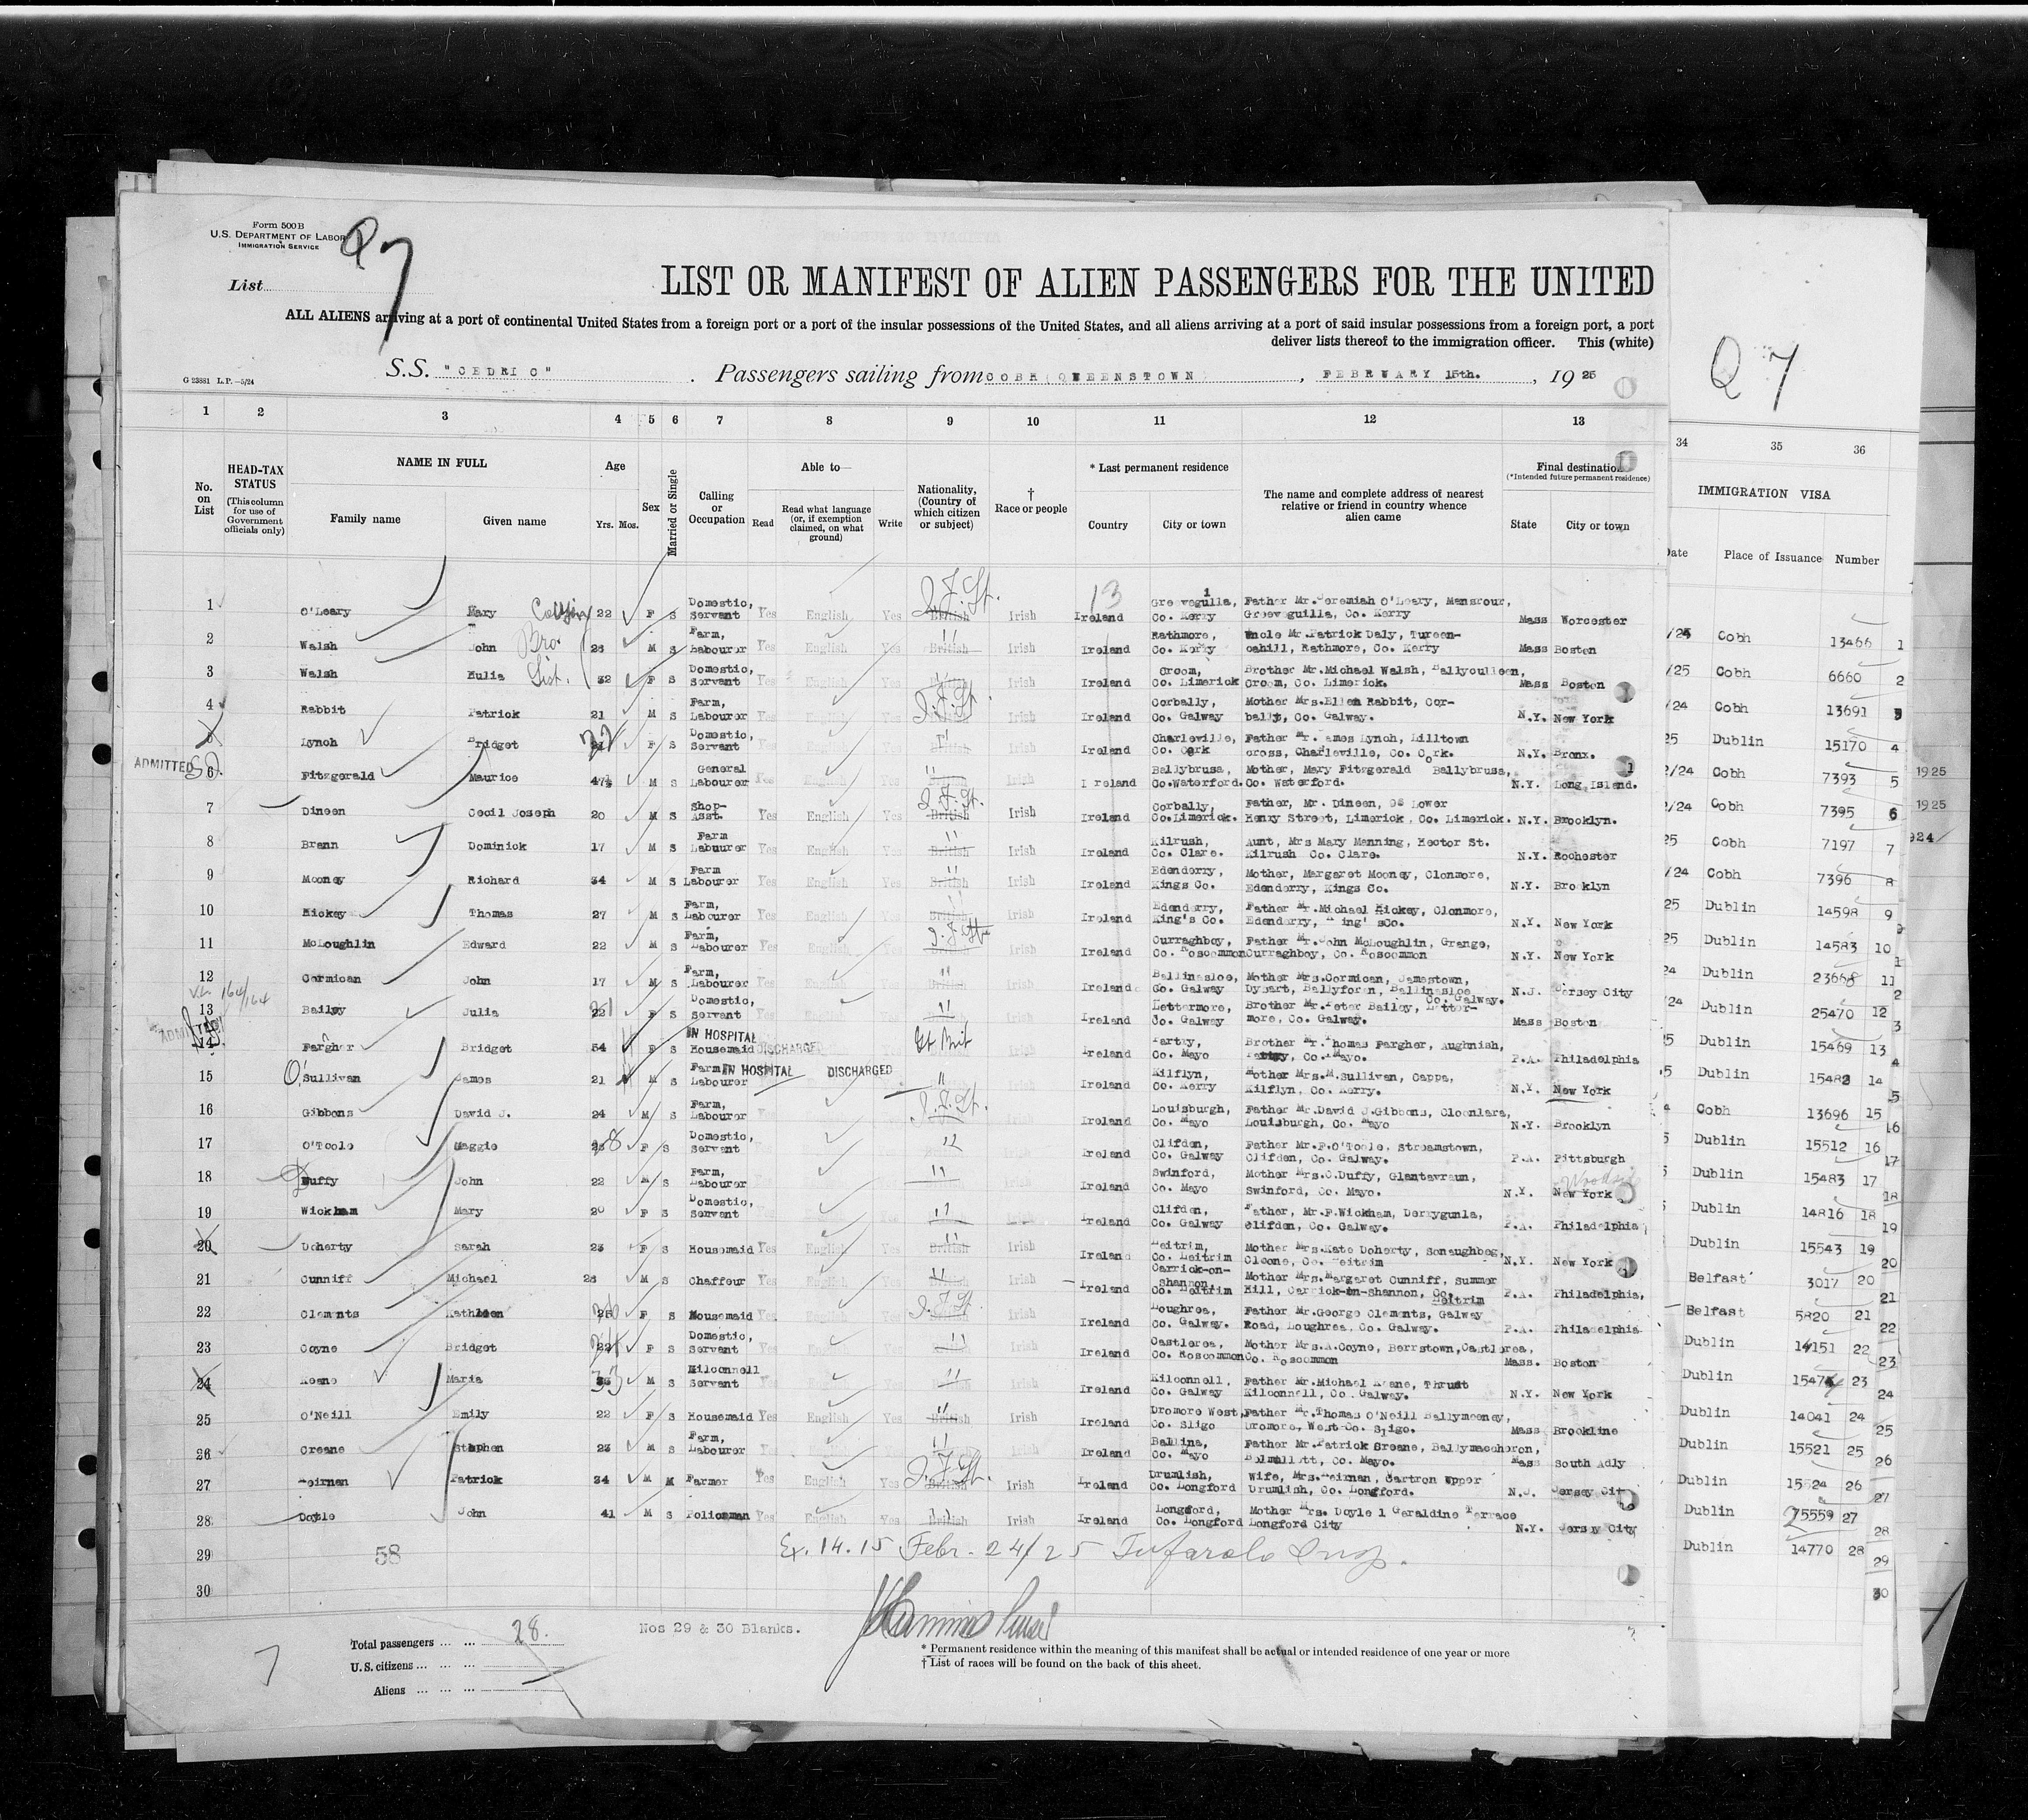 Form 500 B
U.S. DEPARTMENT OF LABOR
IMMIGRATION SERVICE
Q 7
List
LIST OR MANIFEST OF ALIEN PASSENGERS FOR THE UNITED
ALL ALIENS arriving at a port of continental United States from a foreign port or a port of the insular possessions of the United States, and all aliens arriving at a port of said insular possessions from a foreign port, a port
deliver lists thereof to the immigration officer. This (white)
G 23881 L.P.—5/24
S.S. "CEDRIC" . Passengers sailing from COBH (QUEENSTOWN) , FEBRUARY 15th. , 19 25
Q 7
1 2 3 4 5 6 7 8 9 10 11 12 13 34 35 36
No. on List
HEAD-TAX STATUS
(This column for use of Government officials only)
NAME IN FULL
Family name Given name
Age
Yrs. Mos.
Sex
Married or Single
Calling or Occupation
Able to—
Read Read what language (or, if exemption claimed, on what ground) Write
Nationality, (Country of which citizen or subject)
† Race or people
* Last permanent residence
Country City or town
The name and complete address of nearest relative or friend in country whence alien came
Final destination
(*Intended future permanent residence)
State City or town
IMMIGRATION VISA
Date Place of Issuance Number
1 O'Leary Mary Cousin 22 F S Domestic, Servant Yes English Yes British I.F.St. Irish Ireland Greeveguilla, Co. Kerry Father Mr. Jeremiah O'Leary, Mensrour, Greeveguilla, Co. Kerry Mass Worcester
2 Walsh John Bro. 26 M S Farm, Labourer Yes English Yes British " Irish Ireland Rathmore, Co. Kerry Uncle Mr. Patrick Daly, Tureencahill, Rathmore, Co. Kerry Mass Boston /25 Cobh 13466 1
3 Walsh Sist. 32 F S Domestic, Servant Yes English Yes Irish Ireland Croom, Co. Limerick Brother Mr. Michael Walsh, Ballyculleen, Croom, Co. Limerick. Mass Boston /25 Cobh 6660 2
4 Rabbit Patrick 21 M S Farm, Labourer Yes English Yes I.F.St. Irish Ireland Corbally, Co. Galway Mother Mrs. Ellen Rabbit, Corbally, Co. Galway. N.Y. New York /24 Cobh 13691 3
5 Lynch Bridget 22 F S Domestic, Servant Yes English Yes " Irish Ireland Charleville, Co. Cork Father Mr. James Lynch, Lilltown cross, Charleville, Co. Cork. N.Y. Bronx. 25 Dublin 15170 4
ADMITTED 6 Fitzgerald Maurice 47½ M S General Labourer Yes English Yes " Irish Ireland Ballybrusa, Co. Waterford. Mother, Mary Fitzgerald Ballybrusa, Co. Waterford. N.Y. Long Island. 2/24 Cobh 7393 5 1925
7 Dineen Cecil Joseph 20 M S Shop-Asst. Yes English Yes British I.F.St. Irish Ireland Corbally, Co. Limerick. Father, Mr. Dineen, 98 Lower Henry Street, Limerick, Co. Limerick. N.Y. Brooklyn. 2/24 Cobh 7395 6 1925
8 Brann Dominick 17 M S Farm Labourer Yes English Yes British " Irish Ireland Kilrush, Co. Clare. Aunt, Mrs Mary Manning, Hector St. Kilrush Co. Clare. N.Y. Rochester 25 Cobh 7197 7 924
9 Mooney Richard 34 M S Farm Labourer Yes English Yes British " Irish Ireland Edenderry, Kings Co. Mother, Margaret Mooney, Clonmore, Edenderry, Kings Co. N.Y. Broklyn /24 Cobh 7396 8
10 Hickey Thomas 27 M S Farm, Labourer Yes English Yes British " Irish Ireland Edenderry, King's Co. Father Mr. Michael Hickey, Clonmore, Edenderry, King'sCo. N.Y. New York 25 Dublin 14598 9
11 McLoughlin Edward 22 M S Farm, Labourer Yes English Yes British I.F.St. Irish Ireland Curraghboy, Co. Roscommon Father Mr. John McLoughlin, Grange, Curraghboy, Co. Roscommon N.Y. New York 25 Dublin 14583 10
12 Cormican John 17 M S Farm, Labourer Yes English Yes " Irish Ireland Ballinasloe, Co. Galway Mother Mrs. Cormican, Jamestown, Dysart, Ballyforan, Ballinasloe Co. Galway. N.J. Jersey City 24 Dublin 23668 11
164/164
13 Bailey Julia 21 F S Domestic, Servant Yes English Yes " Irish Ireland Lettermore, Co. Galway Brother Mr. Peter Bailey, Lettermore, Co. Galway. Mass Boston /24 Dublin 25470 12
14 Fargher Bridget 34 F S Housemaid IN HOSPITAL DISCHARGED Gt Brit Ireland Partry, Co. Mayo Brother Mr. Thomas Fargher, Aughnish, Partry, Co. Mayo. P.A. Philadelphia 25 Dublin 15469 13
15 O'Sullivan James 21 M S Farm Labourer IN HOSPITAL DISCHARGED " Ireland Kilflyn, Co. Kerry Mother Mrs. M. Sullivan, Cappa, Kilflyn, Co. Kerry. N.Y. New York 5 Dublin 15482 14
16 Gibbons David J. 24 M S Farm, Labourer I.F.St. Ireland Louisburgh, Co. Mayo Father Mr. David J. Gibbons, Cloonlara, Louisburgh, Co. Mayo N.Y. Brooklyn 4 Cobh 13696 15
17 O'Toole Maggie 28 F S Domestic, Servant " Ireland Clifden, Co. Galway Father Mr. P. O'Toole, Streamstown, Clifden, Co. Galway. P.A. Pittsburgh 5 Dublin 15512 16
18 Duffy John 22 M S Farm, Labourer " Ireland Swinford, Co. Mayo Mother Mrs. C. Duffy, Glantavraun, Swinford, Co. Mayo. N.Y. New York Dublin 15483 17
19 Wickham Mary 20 F S Domestic, Servant " Ireland Clifden, Co. Galway Father, Mr. P. Wickham, Derrygunla, Clifden, Co. Galway. P.A. Philadelphia Dublin 14816 18
20 Doherty Sarah 23 F S Housemaid Yes English Yes British " Irish Ireland Leitrim, Co. Leitrim Mother Mrs. Kate Doherty, Sonaughbeg, Cloone, Co. Leitrim N.Y. New York Dublin 15543 19
21 Cunniff Michael 28 M S Chaffeur Yes English Yes " Irish Ireland Carrick-on-Shannon, Co. Leitrim Mother Mrs. Margaret Cunniff, Summer Hill, Carrick-on-Shannon, Co. Leitrim P.A. Philadelphia, Belfast 3017 20
22 Clements Kathleen 26 F S Housemaid Yes English Yes I.F.St. Irish Ireland Loughrea, Co. Galway. Father Mr. George Clements, Galway Road, Loughrea, Co. Galway. P.A. Philadelphia Belfast 5820 21
23 Coyne Bridget 24 F S Domestic, Servant Yes English Yes " Irish Ireland Castlerea, Co. Roscommon Mother Mrs. A. Coyne, Berrstown, Castlerea, Co. Roscommon Mass. Boston Dublin 14151 22
24 Keane Maria 33 M S Kilconnell Servant Yes English Yes " Irish Ireland Kilconnell, Co. Galway Father Mr. Michael Keane, Thrust Kilconnell, Co. Galway. N.Y. New York Dublin 15474 23
25 O'Neill Emily 22 F S Housemaid Yes English Yes British " Irish Ireland Dromore West, Co. Sligo Father Mr. Thomas O'Neill Ballymeeney, Dromore, West Co. Sligo. Mass Brookline Dublin 14041 24
26 Creane Stephen 23 M S Farm, Labourer Yes English Yes " Irish Ireland Ballina, Co. Mayo Father Mr. Patrick Creane, Ballymacehoron, Belmullett, Co. Mayo. Mass South Adly Dublin 15521 25
27 Heirnan Patrick 34 M M Farmer Yes English Yes British I.F.St. Irish Ireland Drumlish, Co. Longford Wife, Mrs. Heirnan, Cartron Upper Drumlish, Co. Longford. N.J. Jersey City Dublin 15524 26
28 Doyle John 41 M S Policeman Yes English Yes British " Irish Ireland Longford, Co. Longford Mother Mrs. Doyle 1 Geraldine Terrace Longford City N.Y. Jersy City Dublin 25559 27
29 58 Ex. 14.15 Febr - 24/25 Tufarolo Insp. Dublin 14770 28
30
Nos 29 & 30 Blanks.
Total passengers ... ... 28.
U.S. citizens ... ... ...
Aliens ... ... ...
7
* Permanent residence within the meaning of this manifest shall be actual or intended residence of one year or more
† List of races will be found on the back of this sheet.